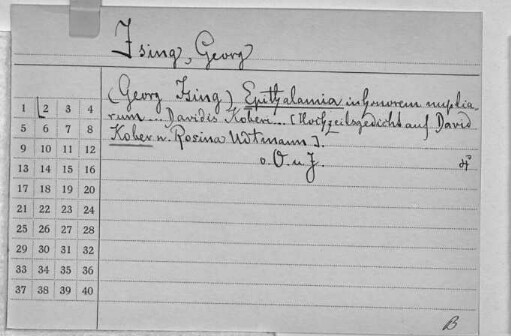 Ising, Georg
(Georg Ising) Epithalamia in honorem nuptia-
rum ... Davidis Koberi ... [Hochzeitsgedicht auf David
Kober u. Rosina Udtmann].
o. O. u. J. 4°
1 2 3 4
5 6 7 8
9 10 11 12
13 14 15 16
17 18 19 20
21 22 23 24
25 26 27 28
29 30 31 32
33 34 35 36
37 38 39 40
B